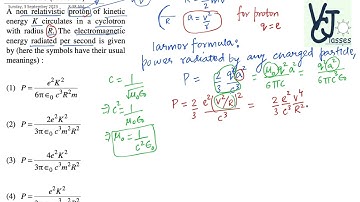 Sunday, 5 September 2021
A non relativistic proton of kinetic
energy K circulates in a cyclotron
with radius R. The electromagnetic
energy radiated per second is given
by (here the symbols have their usual
meanings) :
(1) P = e²K² / 6πε₀ c³m²R
(2) P = e²K² / 3πε₀ c³m²R²
(3) P = 4e²K² / 3πε₀ c³m²R²
(4) P = e²K²
R
a = v²/r
for proton
q = e
larmor formula:
power radiated by any charged particle,
P = 2/3 q²a²/c³ = μ₀q²a²/6πc = q²(a²)/6πc³ε₀
P = 2/3 e²(v²/R)²/c³ = 2/3 e²v⁴/c³R².
c = 1/√μ₀ε₀
⇒ c² = 1/μ₀ε₀
⇒ μ₀ = 1/c²ε₀
VGT
classes